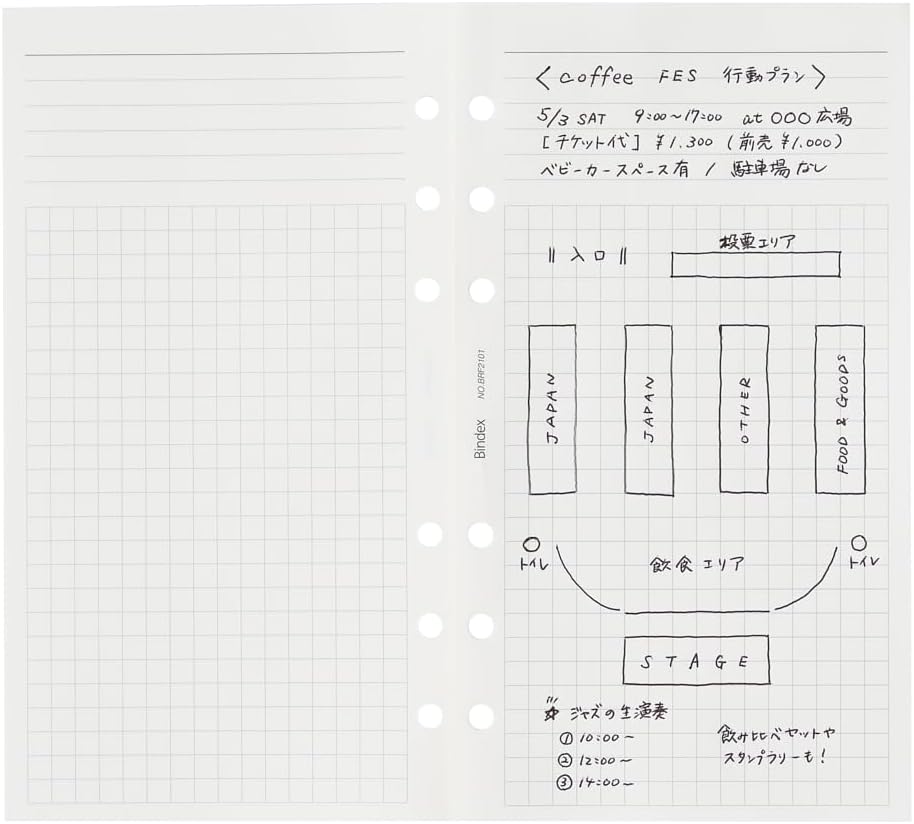 〈 coffee FES 行動プラン 〉
5/3 SAT 9:00〜17:00 at ○○○広場
[チケット代] ¥1.300 (前売 ¥1.000)
ベビーカースペース有 / 駐車場なし
投票エリア
|| 入口 ||
JAPAN
JAPAN
OTHER
FOOD & GOODS
トイレ
飲食エリア
トイレ
STAGE
ジャズの生演奏
① 10:00〜
② 12:00〜
③ 14:00〜
飲み比べセットや
スタンプラリーも!
Bindex NO.BRF2101